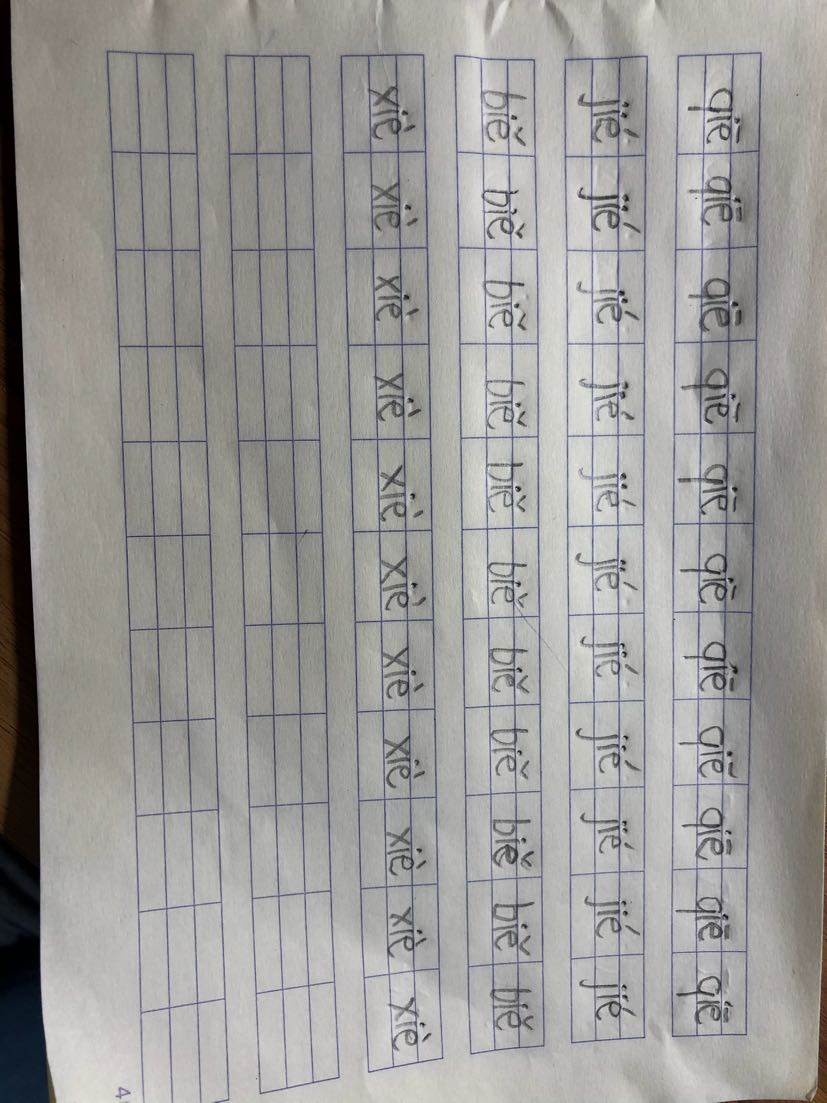 qiē qiē qiē qiē qiē qiē qiē qiē qiē qiē qiē
jié jié jié jié jié jié jié jié jié jié jié
biě biě biě biě biě biě biě biě biě biě biě
xiè xiè xiè xiè xiè xiè xiè xiè xiè xiè xiè